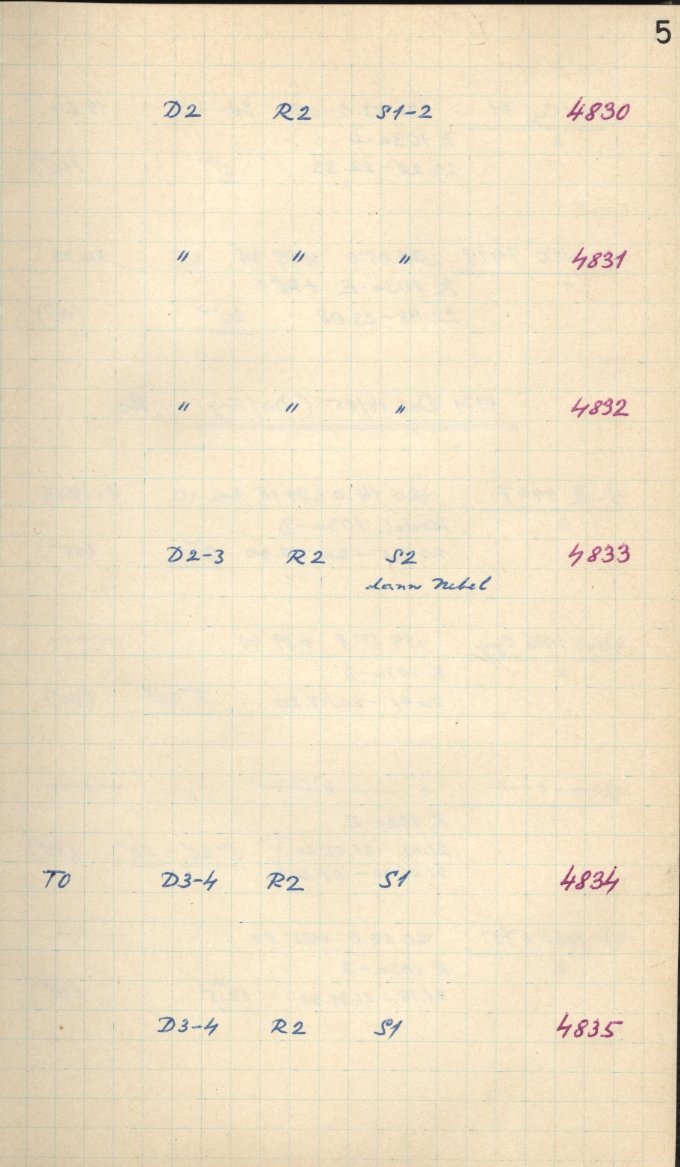 5
D2 R2 S1-2 4830
" " " 4831
" " " 4832
D2-3 R2 S2 4833
dann Nebel
T0 D3-4 R2 S1 4834
D3-4 R2 S1 4835